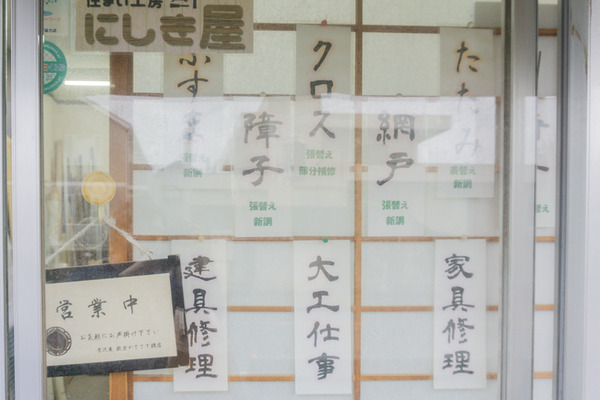 住まい工房
にしき屋
たたみ
表替え
新調
網戸
張替え
新調
クロス
張替え
部分補修
障子
張替え
新調
ふすま
張替え
新調
家具修理
大工仕事
建具修理
営業中
お気軽にお声掛け下さい